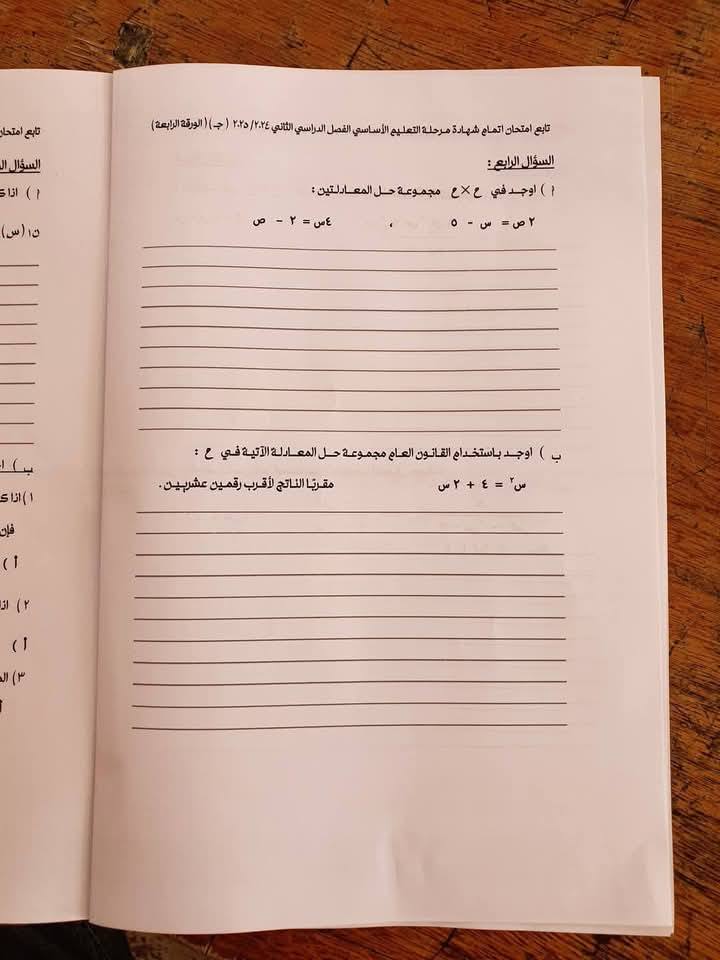 تابع امتحان اتمام شهادة مرحلة التعليم الأساسي الفصل الدراسي الثاني ٢٠٢٤/ ٢٠٢٥ ( جـ ) ( الورقة الرابعة )
السؤال الرابع :
أ ) اوجد في ح × ح مجموعة حل المعادلتين :
٢ ص = س - ٥ ، ٤س = ٢ - ص
ب ) اوجد باستخدام القانون العام مجموعة حل المعادلة الآتية في ح :
س٢ = ٤ + ٢ س مقربًا الناتج لأقرب رقمين عشريين .
تابع امتحان
السؤال
أ ) اذا
ن١ (س)
ب )
١) اذا
فإن
أ )
٢ )
أ )
٣)